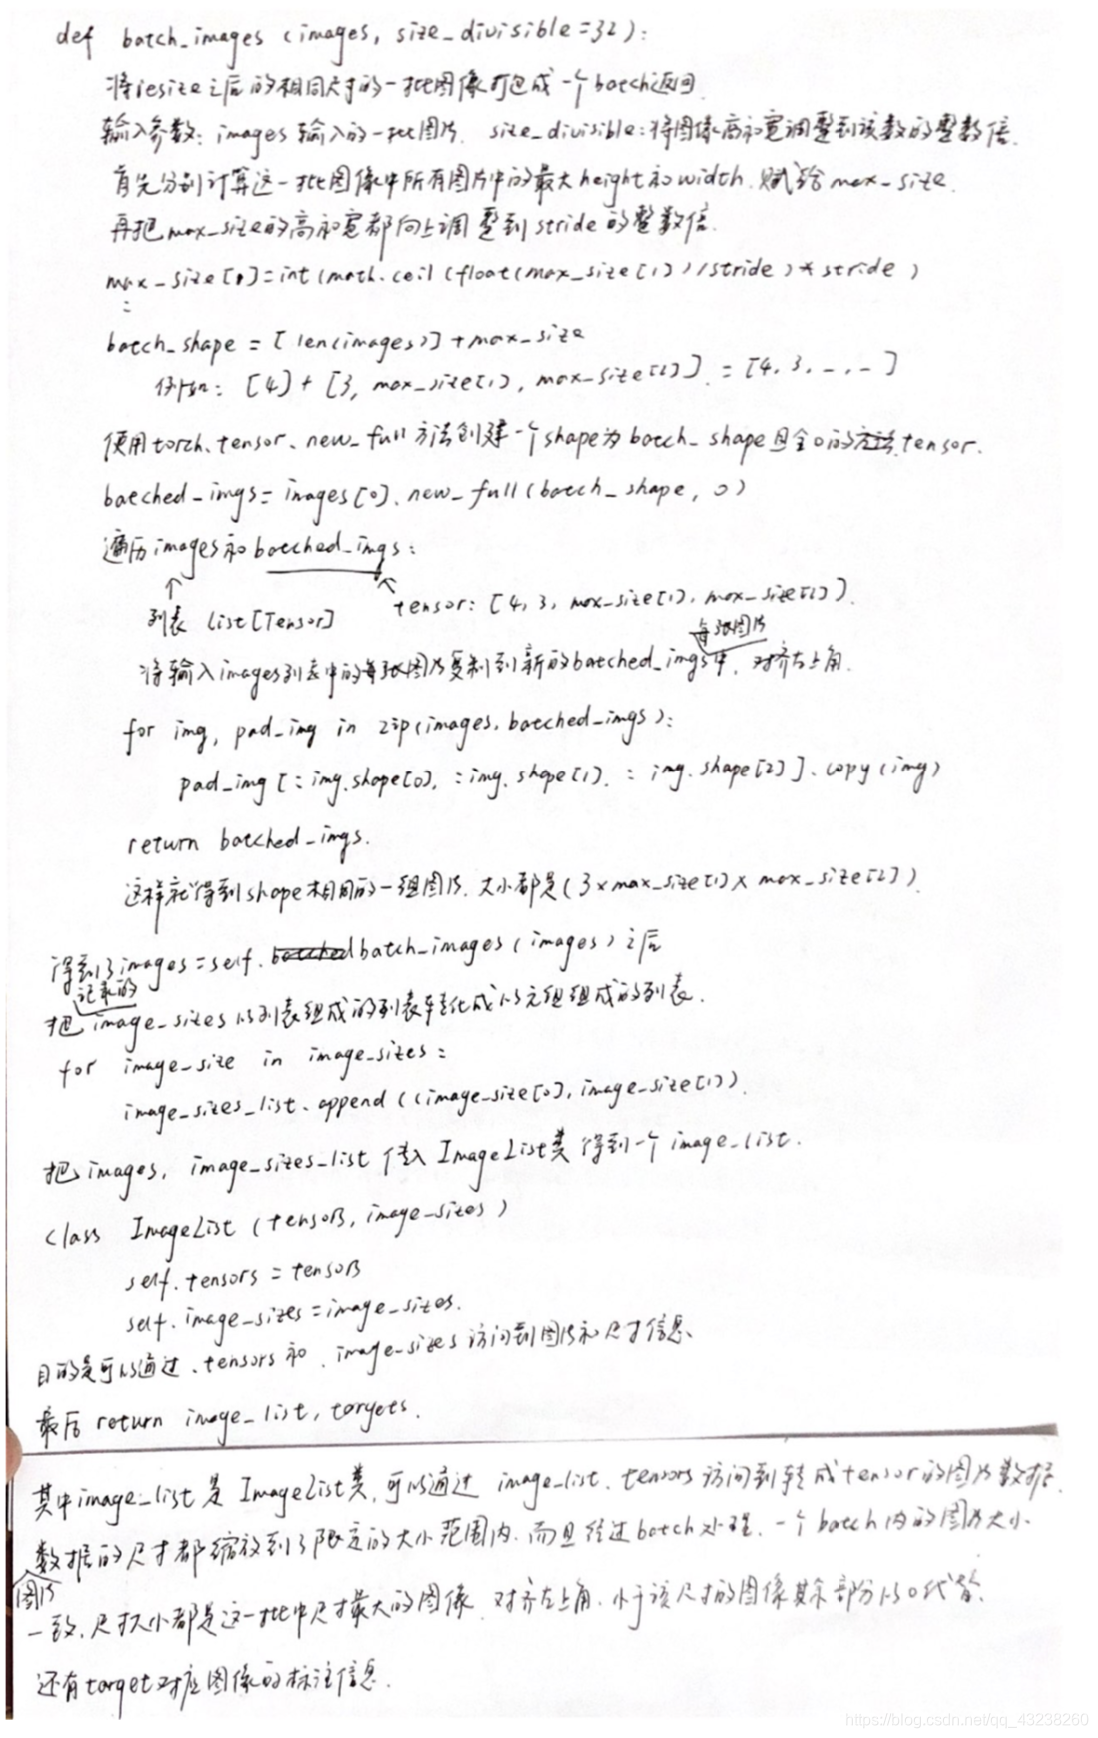 def batch_images (images, size_divisible=32):
将resize之后的相同尺寸的一批图像打包成一个batch返回
输入参数: images 输入的一批图片. size_divisible:将图像高和宽调整到该数的整数倍.
首先分别计算这一批图像中所有图片中的最大height和width.赋给 max_size.
再把max_size的高和宽都向上调整到stride的整数倍.
max_size[1]=int(math.ceil(float(max_size[1])/stride)*stride)
:
batch_shape = [len(images)]+max_size
例如: [4]+[3, max_size[1], max_size[2]] = [4, 3, _, _]
使用torch.tensor.new_full方法创建一个shape为batch_shape且全0的tensor.
batched_imgs=images[0].new_full(batch_shape, 0)
遍历images和batched_imgs:
列表 List[Tensor]
tensor: [4, 3, max_size[1], max_size[2]].
每张图片
将输入images列表中的每张图片复制到新的batched_imgs中, 对齐左上角.
for img, pad_img in zip(images, batched_imgs):
pad_img[:img.shape[0], :img.shape[1], :img.shape[2]].copy(img)
return batched_imgs.
这样就得到shape相同的一组图片. 大小都是(3×max_size[1]×max_size[2]).
得到了images=self.batch_images(images)之后
记录的
把image_sizes以列表组成的列表转化成以元组组成的列表.
for image_size in image_sizes:
image_sizes_list.append((image_size[0],image_size[1]).
把images, image_sizes_list 传入ImageList类 得到一个image_list.
class ImageList (tensors, image_sizes)
self.tensors=tensors
self.image_sizes=image_sizes.
目的是可以通过.tensors和.image_sizes访问到图片和尺寸信息.
最后return image_list, targets.
其中image_list是ImageList类, 可以通过 image_list.tensors访问到转成tensor的图片数据.
数据的尺寸都缩放到了限定的大小范围内. 而且经过batch处理, 一个batch内的图片大小
图片
一致.尺寸大小都是这一批中尺寸最大的图像.对齐左上角.小于该尺寸的图像其余部分以0代替.
还有target对应图像的标注信息.
https://blog.csdn.net/qq_43238260